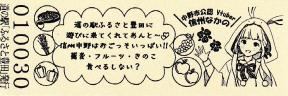 010030
道の駅ふるさと豊田発行
道の駅ふるさと豊田に
遊びに来てくれてあんと～
信州中野はおごっそいっぱい!!
蕎麦・フルーツ・きのこ
食べるしない?
中野市公認 Vtuber
信州なかの